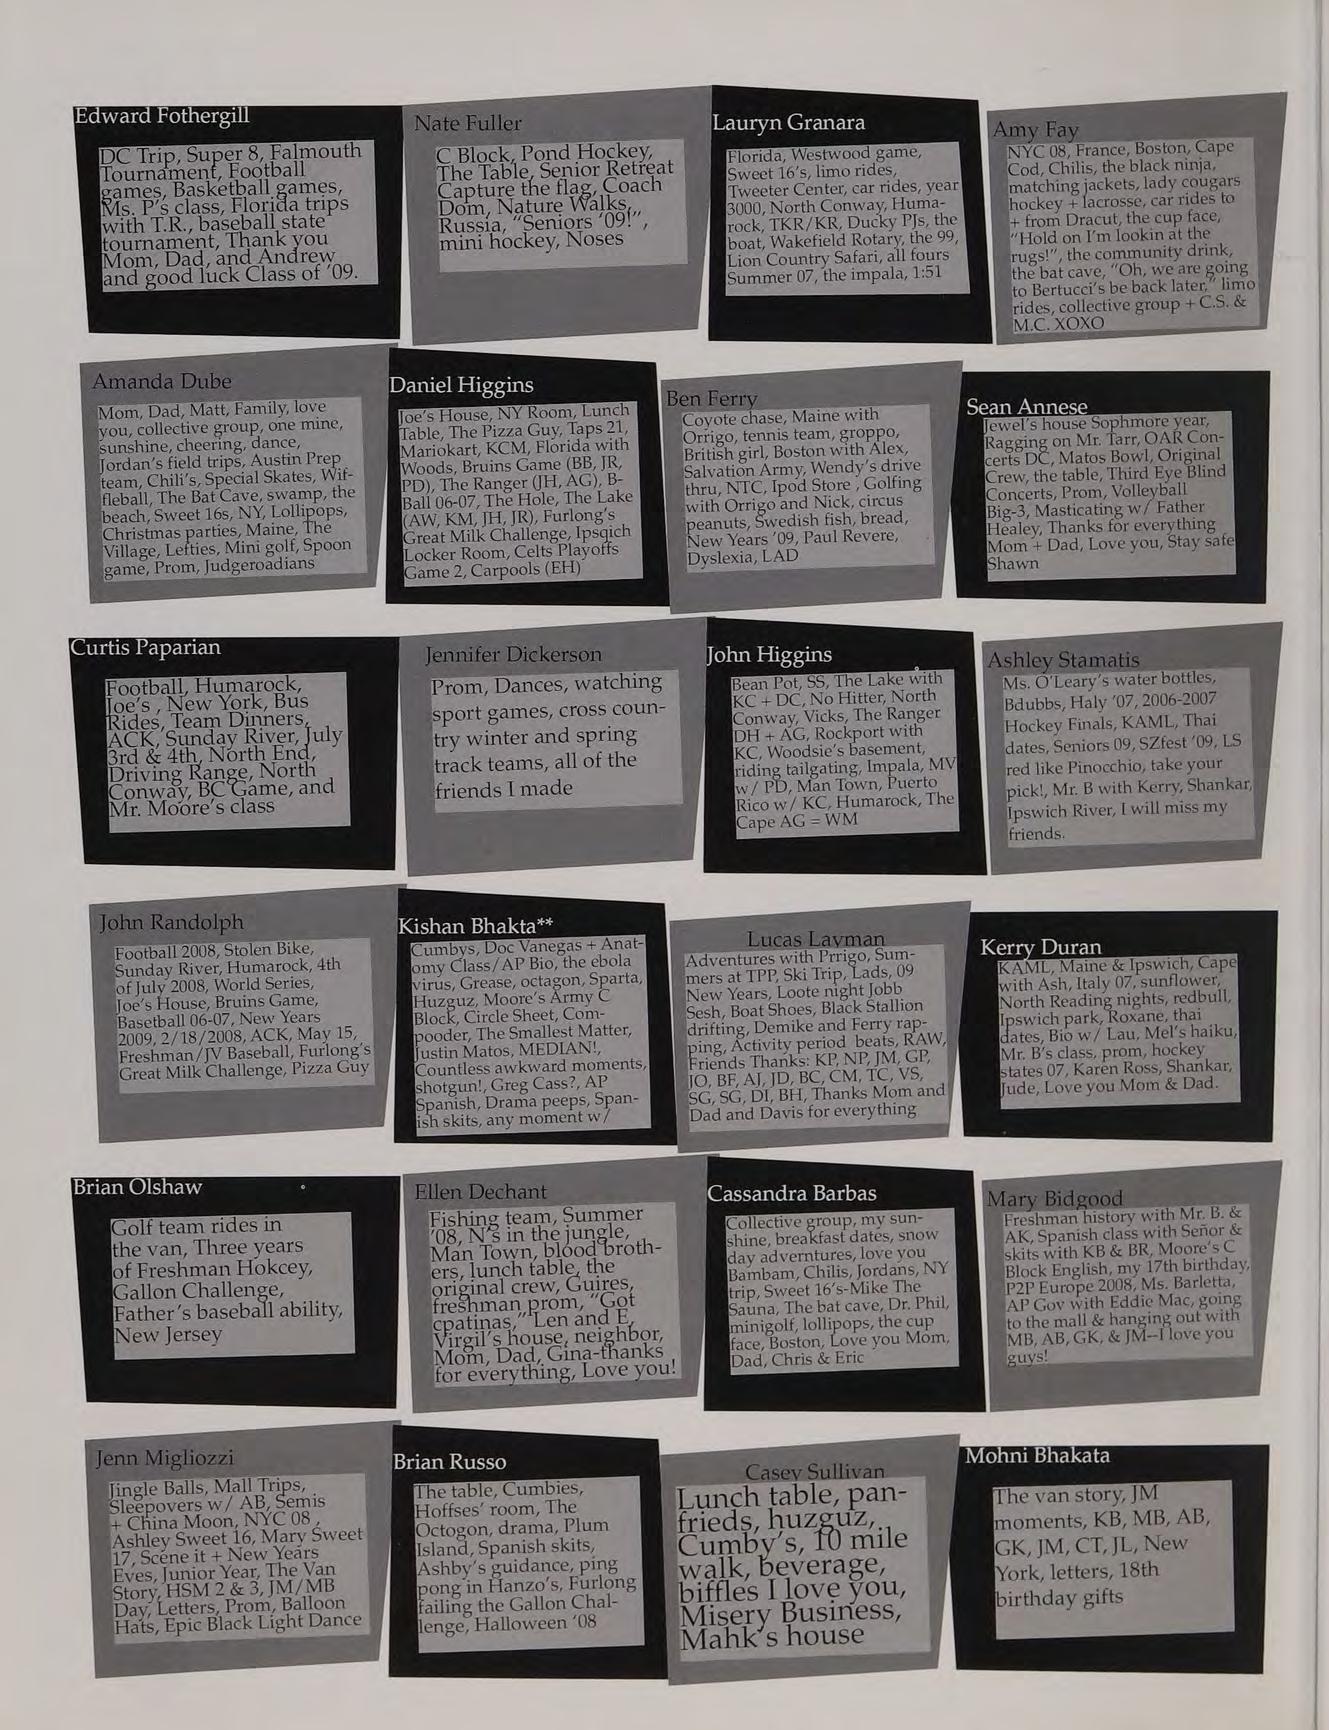 Edward Fothergill
DC Trip, Super 8, Falmouth
Tournament, Football
games, Basketball games,
Ms. P's class, Florida trips
with T.R., baseball state
tournament, Thank you
Mom, Dad, and Andrew
and good luck Class of '09.
Nate Fuller
C Block, Pond Hockey,
The Table, Senior Retreat
Capture the flag, Coach
Dom, Nature Walks,
Russia, "Seniors '09!",
mini hockey, Noses
Lauryn Granara
Florida, Westwood game,
Sweet 16's, limo rides,
Tweeter Center, car rides, year
3000, North Conway, Huma-
rock, TKR/KR, Ducky PJs, the
boat, Wakefield Rotary, the 99,
Lion Country Safari, all fours
Summer 07, the impala, 1:51
Amy Fay
NYC 08, France, Boston, Cape
Cod, Chilis, the black ninja,
matching jackets, lady cougars
hockey + lacrosse, car rides to
+ from Dracut, the cup face,
"Hold on I'm lookin at the
rugs!", the community drink,
the bat cave, "Oh, we are going
to Bertucci's be back later," limo
rides, collective group + C.S. &
M.C. XOXO
Amanda Dube
Mom, Dad, Matt, Family, love
you, collective group, one mine,
sunshine, cheering, dance,
Jordan's field trips, Austin Prep
team, Chili's, Special Skates, Wif-
fleball, The Bat Cave, swamp, the
beach, Sweet 16s, NY, Lollipops,
Christmas parties, Maine, The
Village, Lefties, Mini golf, Spoon
game, Prom, Judgeroadians
Daniel Higgins
Joe's House, NY Room, Lunch
Table, The Pizza Guy, Taps 21,
Mariokart, KCM, Florida with
Woods, Bruins Game (BB, JR,
PD), The Ranger (JH, AG), B-
Ball 06-07, The Hole, The Lake
(AW, KM, JH, JR), Furlong's
Great Milk Challenge, Ipsqich
Locker Room, Celts Playoffs
Game 2, Carpools (EH)
Ben Ferry
Coyote chase, Maine with
Orrigo, tennis team, groppo,
British girl, Boston with Alex,
Salvation Army, Wendy's drive
thru, NTC, Ipod Store , Golfing
with Orrigo and Nick, circus
peanuts, Swedish fish, bread,
New Years '09, Paul Revere,
Dyslexia, LAD
Sean Annese
Jewel's house Sophmore year,
Ragging on Mr. Tarr, OAR Con-
certs DC, Matos Bowl, Original
Crew, the table, Third Eye Blind
Concerts, Prom, Volleyball
Big-3, Masticating w/ Father
Healey, Thanks for everything
Mom + Dad, Love you, Stay safe
Shawn
Curtis Paparian
Football, Humarock,
Joe's , New York, Bus
Rides, Team Dinners,
ACK, Sunday River, July
3rd & 4th, North End,
Driving Range, North
Conway, BC Game, and
Mr. Moore's class
Jennifer Dickerson
Prom, Dances, watching
sport games, cross coun-
try winter and spring
track teams, all of the
friends I made
John Higgins
Bean Pot, SS, The Lake with
KC + DC, No Hitter, North
Conway, Vicks, The Ranger
DH + AG, Rockport with
KC, Woodsie's basement,
riding tailgating, Impala, MV
w/ PD, Man Town, Puerto
Rico w/ KC, Humarock, The
Cape AG = WM
Ashley Stamatis
Ms. O'Leary's water bottles,
Bdubbs, Haly '07, 2006-2007
Hockey Finals, KAML, Thai
dates, Seniors 09, SZfest '09, LS
red like Pinocchio, take your
pick!, Mr. B with Kerry, Shankar,
Ipswich River, I will miss my
friends.
John Randolph
Football 2008, Stolen Bike,
Sunday River, Humarock, 4th
of July 2008, World Series,
Joe's House, Bruins Game,
Basetball 06-07, New Years
2009, 2/18/2008, ACK, May 15,
Freshman/JV Baseball, Furlong's
Great Milk Challenge, Pizza Guy
Kishan Bhakta**
Cumbys, Doc Vanegas + Anat-
omy Class/AP Bio, the ebola
virus, Grease, octagon, Sparta,
Huzguz, Moore's Army C
Block, Circle Sheet, Com-
pooder, The Smallest Matter,
Justin Matos, MEDIAN!,
Countless awkward moments,
shotgun!, Greg Cass?, AP
Spanish, Drama peeps, Span-
ish skits, any moment w/
Lucas Layman
Adventures with Prrigo, Sum-
mers at TPP, Ski Trip, Lads, 09
New Years, Loote night Jobb
Sesh, Boat Shoes, Black Stallion
drifting, Demike and Ferry rap-
ping, Activity period beats, RAW,
Friends Thanks: KP, NP, JM, GP,
JO, BF, AJ, JD, BC, CM, TC, VS,
SG, SG, DI, BH, Thanks Mom and
Dad and Davis for everything
Kerry Duran
KAML, Maine & Ipswich, Cape
with Ash, Italy 07, sunflower,
North Reading nights, redbull,
Ipswich park, Roxane, thai
dates, Bio w/ Lau, Mel's haiku,
Mr. B's class, prom, hockey
states 07, Karen Ross, Shankar,
Jude, Love you Mom & Dad.
Brian Olshaw
Golf team rides in
the van, Three years
of Freshman Hokcey,
Gallon Challenge,
Father's baseball ability,
New Jersey
Ellen Dechant
Fishing team, Summer
'08, N's in the jungle,
Man Town, blood broth-
ers, lunch table, the
original crew, Guires,
freshman prom, "Got
cpatinas," Len and E,
Virgil's house, neighbor,
Mom, Dad, Gina-thanks
for everything, Love you!
Cassandra Barbas
Collective group, my sun-
shine, breakfast dates, snow
day adverntures, love you
Bambam, Chilis, Jordans, NY
trip, Sweet 16's-Mike The
Sauna, The bat cave, Dr. Phil,
minigolf, lollipops, the cup
face, Boston, Love you Mom,
Dad, Chris & Eric
Mary Bidgood
Freshman history with Mr. B. &
AK, Spanish class with Señor &
skits with KB & BR, Moore's C
Block English, my 17th birthday,
P2P Europe 2008, Ms. Barletta,
AP Gov with Eddie Mac, going
to the mall & hanging out with
MB, AB, GK, & JM--I love you
guys!
Jenn Migliozzi
Jingle Balls, Mall Trips,
Sleepovers w/ AB, Semis
+ China Moon, NYC 08 ,
Ashley Sweet 16, Mary Sweet
17, Scene it + New Years
Eves, Junior Year, The Van
Story, HSM 2 & 3, JM/MB
Day, Letters, Prom, Balloon
Hats, Epic Black Light Dance
Brian Russo
The table, Cumbies,
Hoffses' room, The
Octogon, drama, Plum
Island, Spanish skits,
Ashby's guidance, ping
pong in Hanzo's, Furlong
failing the Gallon Chal-
lenge, Halloween '08
Casey Sullivan
Lunch table, pan-
frieds, huzguz,
Cumby's, 10 mile
walk, beverage,
biffles I love you,
Misery Business,
Mahk's house
Mohni Bhakata
The van story, JM
moments, KB, MB, AB,
GK, JM, CT, JL, New
York, letters, 18th
birthday gifts